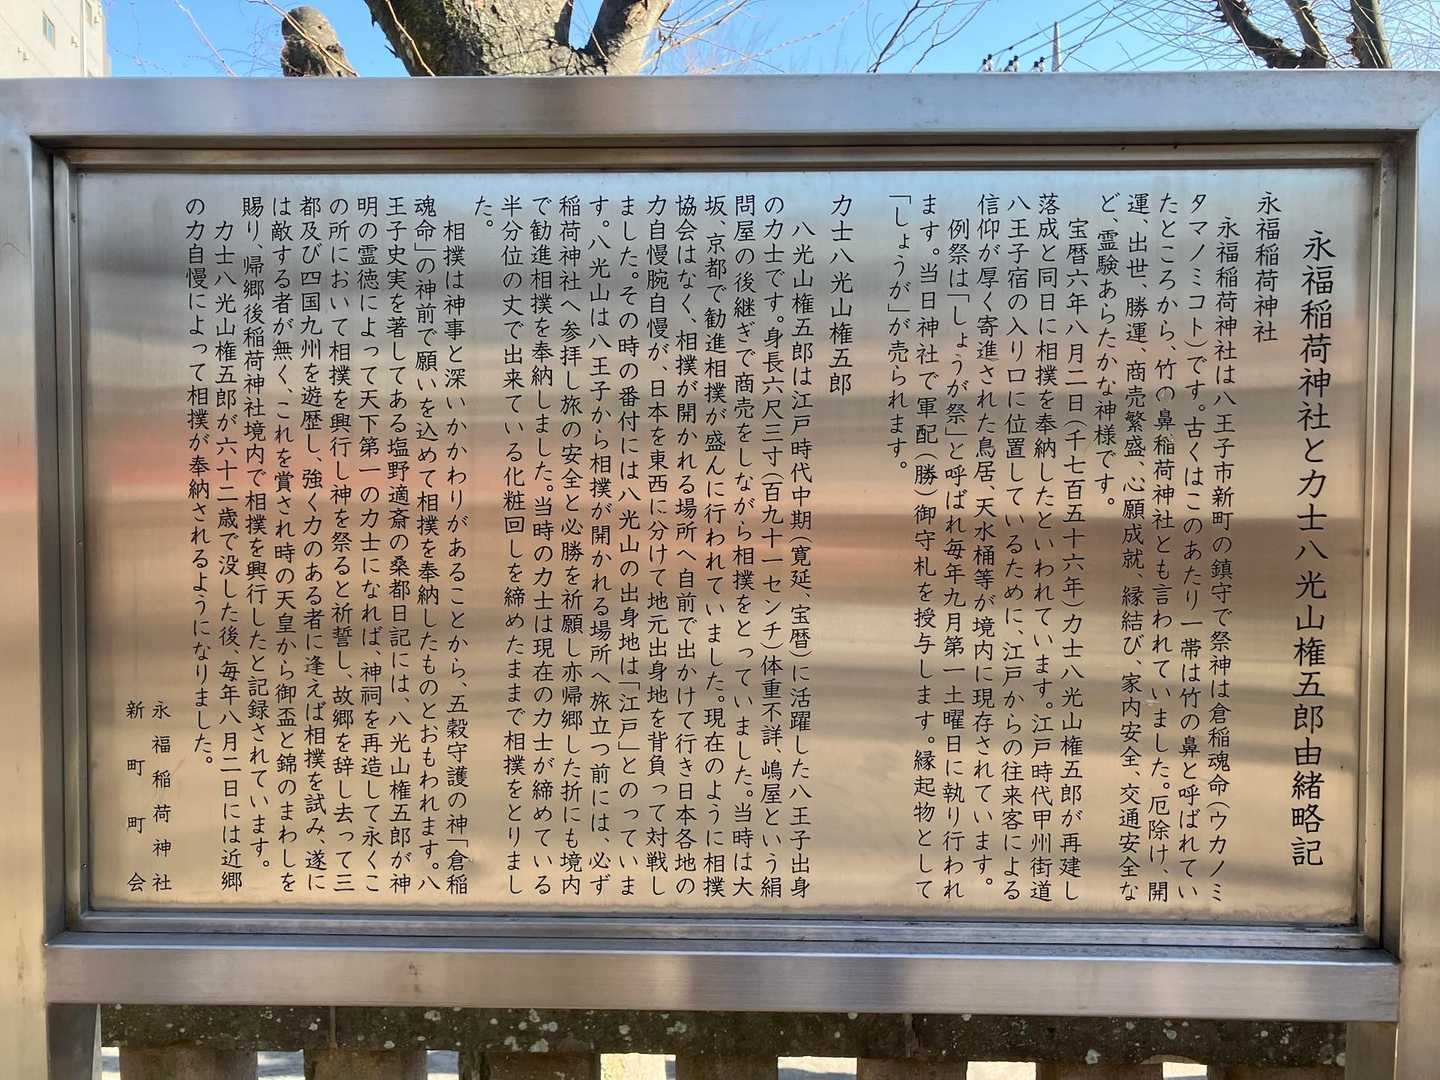 永福稲荷神社と力士八光山権五郎由緒略記
永福稲荷神社
永福稲荷神社は八王子市新町の鎮守で祭神は倉稲魂命(ウカノミ
タマノミコト)です。古くはこのあたり一帯は竹の鼻と呼ばれてい
たところから、竹の鼻稲荷神社とも言われていました。厄除け、開
運、出世、勝運、商売繁盛、心願成就、縁結び、家内安全、交通安全な
ど、霊験あらたかな神様です。
宝暦六年八月二日(千七百五十六年)力士八光山権五郎が再建し
落成と同日に相撲を奉納したといわれています。江戸時代甲州街道
八王子宿の入り口に位置しているために、江戸からの往来客による
信仰が厚く寄進された鳥居、天水桶等が境内に現存されています。
例祭は「しょうが祭」と呼ばれ毎年九月第一土曜日に執り行われ
ます。当日神社で軍配(勝)御守札を授与します。縁起物として
「しょうが」が売られます。
力士八光山権五郎
八光山権五郎は江戸時代中期(寛延、宝暦)に活躍した八王子出身
の力士です。身長六尺三寸(百九十一センチ)体重不詳、嶋屋という絹
問屋の後継ぎで商売をしながら相撲をとっていました。当時は大
坂、京都で勧進相撲が盛んに行われていました。現在のように相撲
協会はなく、相撲が開かれる場所へ自前で出かけて行き日本各地の
力自慢腕自慢が、日本を東西に分けて地元出身地を背負って対戦し
ました。その時の番付には八光山の出身地は「江戸」とのっていま
す。八光山は八王子から相撲が開かれる場所へ旅立つ前には、必ず
稲荷神社へ参拝し旅の安全と必勝を祈願し亦帰郷した折にも境内
で勧進相撲を奉納しました。当時の力士は現在の力士が締めている
半分位の丈で出来ている化粧回しを締めたままで相撲をとりまし
た。
相撲は神事と深いかかわりがあることから、五穀守護の神「倉稲
魂命」の神前で願いを込めて相撲を奉納したものとおもわれます。八
王子史実を著してある塩野適斎の桑都日記には、八光山権五郎が神
明の霊徳によって天下第一の力士になれば、神祠を再造して永くこ
の所において相撲を興行し神を祭ると祈誓し、故郷を辞し去って三
都及び四国九州を遊歴し、強く力のある者に逢えば相撲を試み、遂に
は敵する者が無く、これを賞され時の天皇から御盃と錦のまわしを
賜り、帰郷後稲荷神社境内で相撲を興行したと記録されています。
力士八光山権五郎が六十二歳で没した後、毎年八月二日には近郷
の力自慢によって相撲が奉納されるようになりました。
永福稲荷神社
新町町会